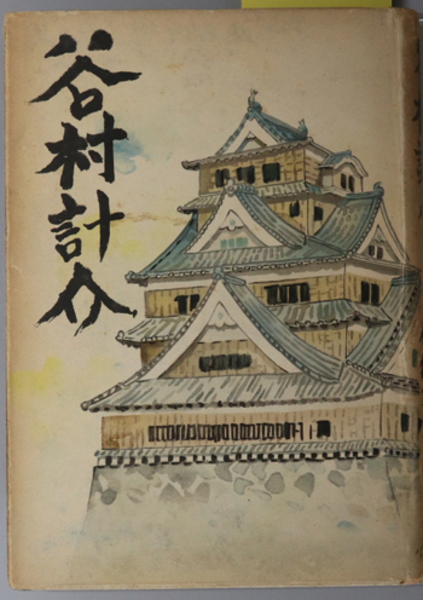 谷村計介